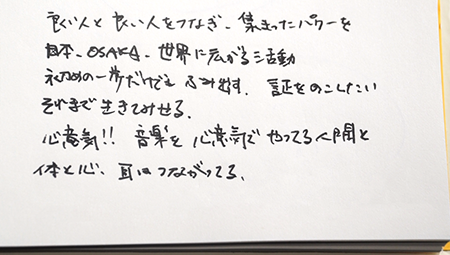 良い人と良い人をつなぎ、集まったパワーを
日本、OSAKA、世界に広がる活動
初めの一歩だけでも ふみ出す。証をのこしたい
それまで生きてみせる。
心意気!! 音楽を心意気でやってる人間と
体と心、耳はつながってる。